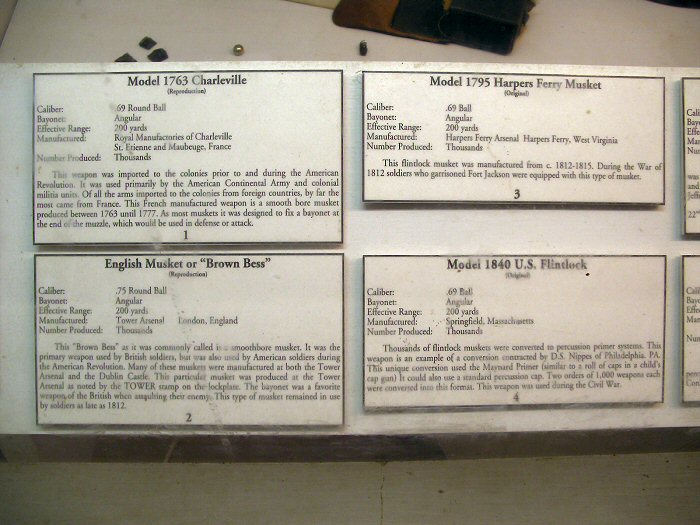 Model 1763 Charleville
(Reproduction)
Caliber: .69 Round Ball
Bayonet: Angular
Effective Range: 200 yards
Manufactured: Royal Manufactories of Charleville
St. Etienne and Maubeuge, France
Number Produced: Thousands
This weapon was imported to the colonies prior to and during the American
Revolution. It was used primarily by the American Continental Army and colonial
militia units. Of all the arms imported to the colonies from foreign countries, by far the
most came from France. This French manufactured weapon is a smooth bore musket
produced between 1763 until 1777. As most muskets it was designed to fix a bayonet at
the end of the muzzle, which would be used in defense or attack.
1
English Musket or “Brown Bess”
(Reproduction)
Caliber: .75 Round Ball
Bayonet: Angular
Effective Range: 200 yards
Manufactured: Tower Arsenal London, England
Number Produced: Thousands
This "Brown Bess" as it was commonly called is a smoothbore musket. It was the
primary weapon used by British soldiers, but was also used by American soldiers during
the American Revolution. Many of these muskets were manufactured at both the Tower
Arsenal and the Dublin Castle. This particular musket was produced at the Tower
Arsenal as noted by the TOWER stamp on the lockplate. The bayonet was a favorite
weapon of the British when assaulting their enemy. This type of musket remained in use
by soldiers as late as 1812.
2
Model 1795 Harpers Ferry Musket
(Original)
Caliber: .69 Ball
Bayonet: Angular
Effective Range: 200 yards
Manufactured: Harpers Ferry Arsenal Harpers Ferry, West Virginia
Number Produced: Thousands
This flintlock musket was manufactured from c. 1812-1815. During the War of
1812 soldiers who garrisoned Fort Jackson were equipped with this type of musket.
3
Model 1840 U.S. Flintlock
(Original)
Caliber: .69 Ball
Bayonet: Angular
Effective Range: 200 yards
Manufactured: Springfield, Massachusetts
Number Produced: Thousands
Thousands of flintlock muskets were converted to percussion primer systems. This
weapon is an example of a conversion contracted by D.S. Nippes of Philadelphia, PA.
This unique conversion used the Maynard Primer (similar to a roll of caps in a child's
cap gun) It could also use a standard percussion cap. Two orders of 1,000 weapons each
were converted into this format. This weapon was used during the Civil War.
4